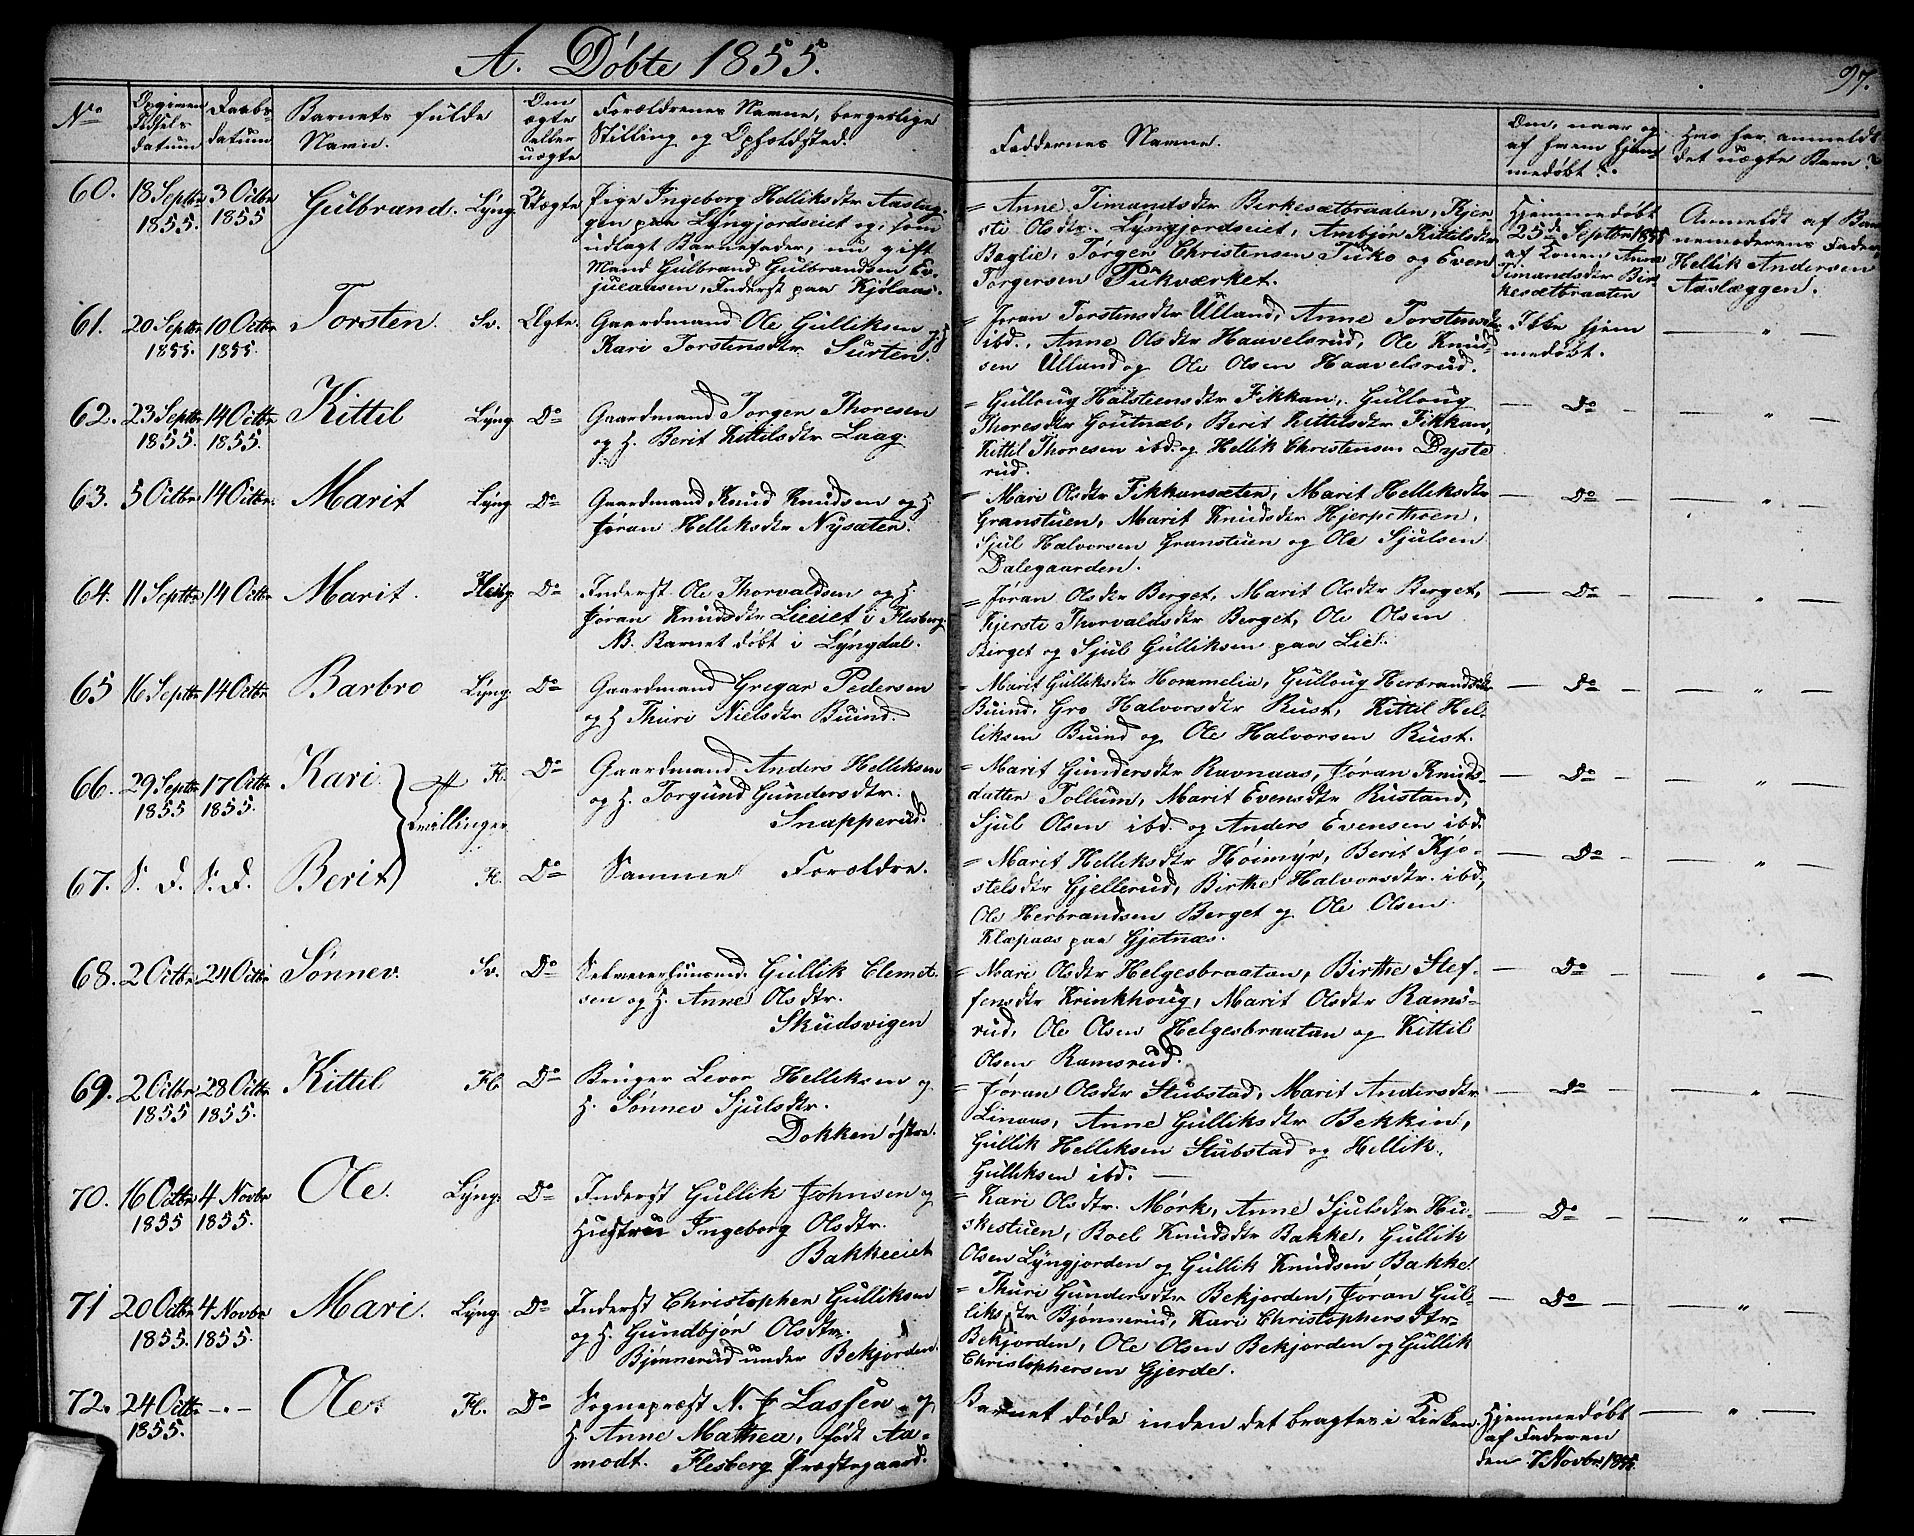 A. Døbte 1855.
97.
No
Opgiven Fødsels datum
Daabs datum
Barnets fulde Navn.
Om ægte eller uægte
Forældrenes Navne, borgerlige
Stilling og Opholdsted.
Faddernes Navne.
Om, naar og af hvem hjemmedøbt?
Hvo har anmeldt det uægte Barn?
60. 18 Septbr 1855. 3 Octbr 1855 Gulbrand. Lyng. Uægte
Pige Ingeborg Helliksdtr Aaslæg-
gen paa Lyngjordseiet og som
udlagt Barnefader, nu gift
Mand Gulbrand Gulbrandsen Ev-
juaasen, Inderst paa Kjølaas.
= Anne Timandsdtr Birkesætbraaten, Kjer
sti Olsdtr. Lyngjordseiet, Ambjør Kittilsdtr
Baglie, Jørgen Christensen Tuko og Even
Torgersen Pukværket.
Hjemmedøbt
25de Septbr 1855
af Konen Anne
Timandsdtr Bir
kesætbraaten
Anmeldt af Bar
nemoderens Fader,
Hellik Andersen
Aaslæggen.
61. 20 Septbr 1855. 10 Octbr 1855. Torsten. Sv. Ægte.
Gaardmand Ole Gulliksen og H
Kari Torstensdtr Surten.
= Jøran Torstensdtr Ulland, Anne Torstensdtr
ibd., Anne Olsdtr Haavelsrud, Ole Knud-
sen Ulland og Ole Olsen Haavelsrud.
Ikke hjem
medøbt.
— " —
62. 23 Septbr 1855. 14 Octbr 1855. Kittil Lyng. Do
Gaardmand Jørgen Thoresen
og H. Berit Kittilsdtr Laag.
= Gulloug Halstensdtr Fikkan, Gulloug
Thoresdtr Goutnæb, Berit Kittilsdtr Fikkan,
Kittil Thoresen ibd. og Hellik Christensen Dyste
rud.
— Do —
— " —
63. 5 Octbr. 14 Octbr. Marit Lyng. Do
Gaardmand Knud Knudsen og H
Jøran Helliksdtr Nysæter.
= Mari Olsdtr Fikkansæter, Marit Helliksdtr
Granstuen, Marit Knudsdtr Hjerpethoen,
Sjul Halvorsen Granstuen og Ole Sjulsen
Dalegaarden.
— Do —
— " —
64. 11 Septbr 14 Octbr Marit. Flesbg Do
Inderst Ole Thorvaldsen og H.
Jøran Knudsdtr Lieeiet i Flesberg.
NB. Barnet døbt i Lyngdal.
= Jøran Olsdtr Berget, Marit Olsdtr Berget,
Kjersti Thorvaldsdtr Berget, Ole Olsen
Berget og Sjul Gulliksen paa Lie.
— Do —
— " —
65 16 Septbr 14 Octbr Barbro Lyng. Do
Gaardmand Gregar Pedersen
og H Thuri Nielsdtr Buind.
= Marit Gulliksdtr Hommelia, Gulloug Herbrandsdtr
Buind, Gro Halvorsdtr Rust, Kittil Hel-
liksen Buind og Ole Halvorsen Rust.
— Do —
— " —
66. 29 Septbr 1855 17 Octbr 1855. Kari Tvillinger Fl. Do
Gaardmand Anders Helliksen
og H. Torgund Gundersdtr.
Snapperud.
= Marit Gundersdtr Ravnaas, Jøran Knuds-
datter Tollum, Marit Evensdtr Rustand,
Sjul Olsen ibd. og Anders Evensen ibd.
— Do —
— " —
67. S. D. S. D. Berit Fl. Do
Samme Forældre.
= Marit Helliksdtr Høimyr, Berit Kjø-
stelsdtr Gjellerud, Birthe Halvorsdtr. ibd.,
Ole Herbrandsen Berget og Ole Olsen
Klæpaas paa Gjetnæs.
— Do —
— " —
68. 2 Octbr. 24 Octbr Sønnev. Sv. Do
Gullik Clemet-
sen og H. Anne Olsdtr.
Skudsvigen
= Mari Olsdtr Helgesbraatan, Birthe Stef-
fensdtr Krinkhoug, Marit Olsdtr Rams-
rud, Ole Olsen Helgesbraatan og Kittil
Olsen Ramsrud.
— Do —
— " —
69. 2 Octbr. 1855 28 Octbr 1855. Kittil Fl. Do
Bruger Levor Helliksen og
H. Sønnev Sjulsdtr.
Dokken østre.
= Jøran Olsdtr Stubstad, Marit Andersdtr
Linaas, Anne Gulliksdtr Bekkin,
Gullik Helliksen Stubstad og Hellik
Gulliksen ibd. —
— Do —
— " —
70. 16 Octbr 1855 4 Novbr 1855. Ole. Lyng. Do
Inderst Gullik Johnsen og
Hustru Ingeborg Olsdtr.
Bakkeeiet
= Kari Olsdtr. Mørk, Anne Sjulsdtr Hu-
skestuen, Boel Knudsdtr Bakke, Gullik
Olsen Lyngjorden og Gullik Knudsen Bakke
— Do —
— " —
71 20 Octbr 1855. 4 Novbr 1855. Mari. Lyng. Do
Inderst Christopher Gulliksen
og H. Gundbjør Olsdtr.
Bjønnerud under Bekjorden.
= Thuri Gundersdtr Bekjorden, Jøran Gul-
liksdtr Bjønnerud, Kari Christophersdtr
Bekjorden, Ole Olsen Bekjorden og Gullik
Christophersen Gjerde.
— Do —
— " —
72. 24 Octbr 1855. —.— Ole. Fl. Do
Sognepræst N. J Lassen og
H. Anne Mathea, født Aa-
modt. Flesberg Præstegaard.
Barnet døde inden det bragtes i Kirken.
Hjemmedøbt
af Faderen
den 7 Novbr. 1855.
— " —